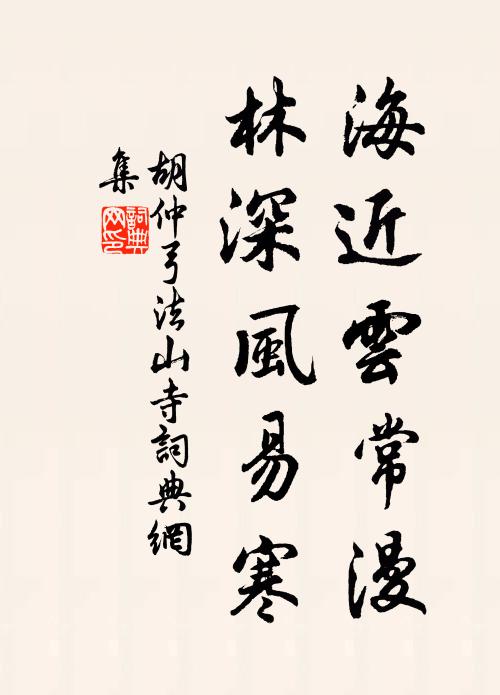 海近雲常漫
林深風易寒
胡仲弓法山寺詞典網
集
詞典
网印